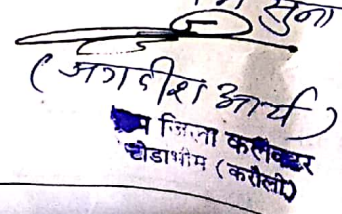 सुना
(जगदीश आर्य)
उप जिला कलेक्टर
टोडाभीम (करौली)